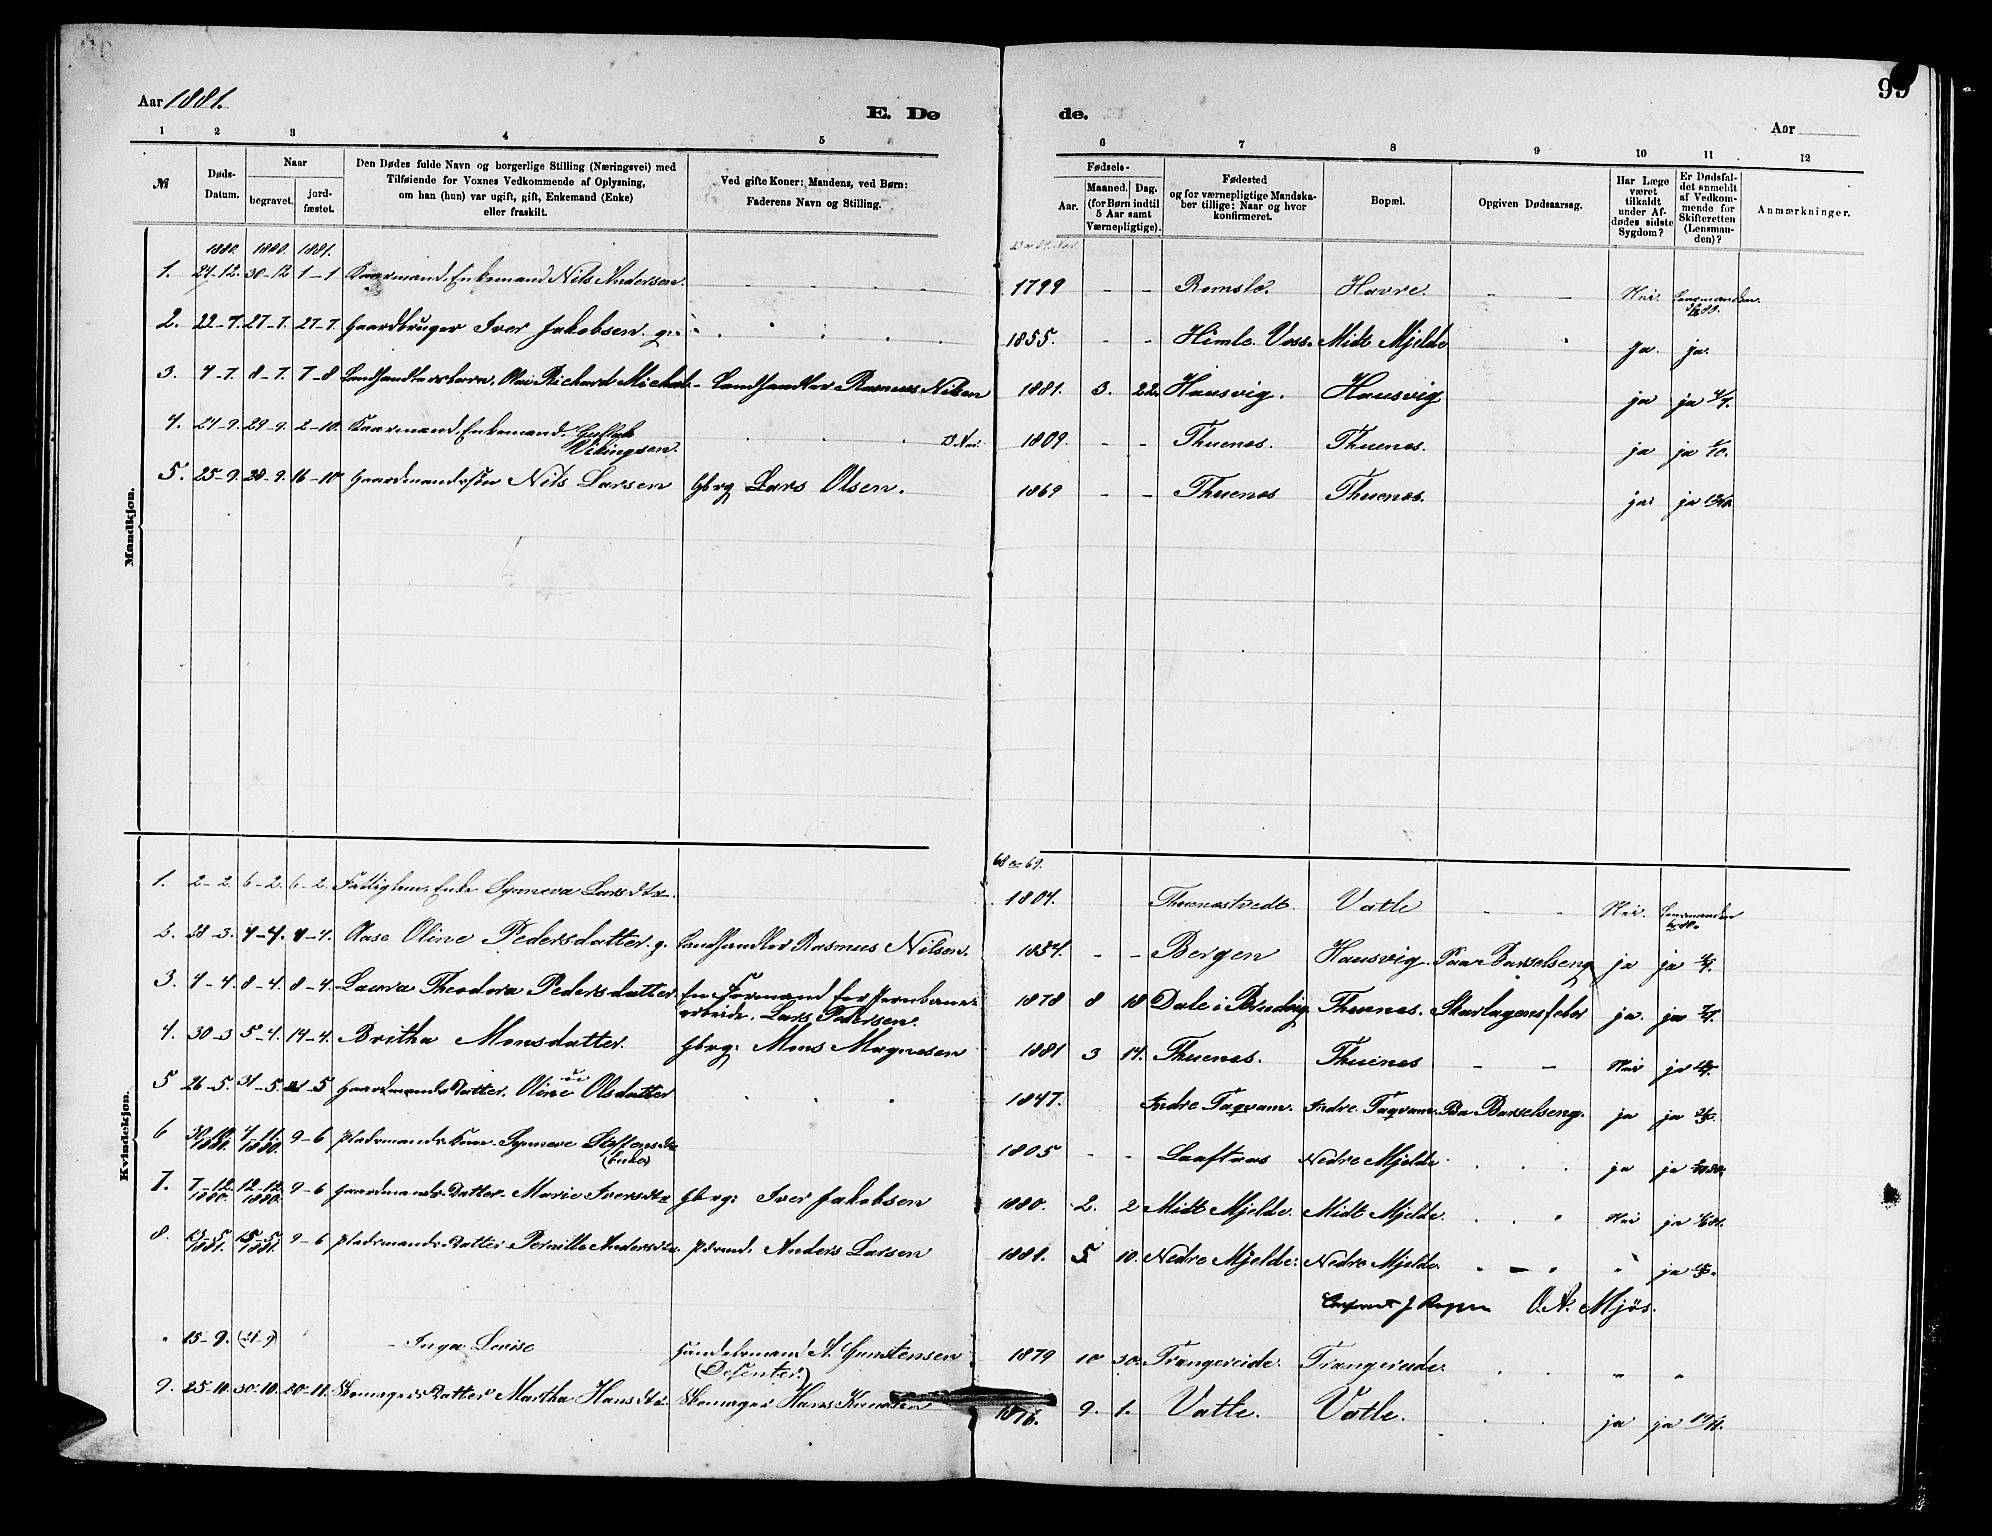 99
Aar 1881.
E. Dø
de.
Aar
1 2 3 4 5 6 7 8 9 10 11 12
№
Døds-
Datum.
Naar
begravet.
jord-
fæstet.
Den Dødes fulde Navn og borgerlige Stilling (Næringsvei) med
Tilføiende for Voxnes Vedkommende af Oplysning,
om han (hun) var ugift, gift, Enkemand (Enke)
eller fraskilt.
Ved gifte Koner: Mandens, ved Børn:
Faderens Navn og Stilling.
Fødsels-
Aar.
Maaned. Dag.
(for Børn indtil
5 Aar samt
Værnepligtige).
Fødested
og for værnepligtige Mandska-
ber tillige: Naar og hvor
konfirmeret.
Bopæl.
Opgiven Dødsaarsag.
Har Læge
været
tilkaldt
under Af-
dødes sidste
Sygdom?
Er Dødsfal-
det anmeldt
af Vedkom-
mende for
Skifteretten
(Lensman-
den)?
Anmærkninger.
Mandkjøn.
1880. 1880. 1881.
1. 24-12. 30-12 1-1 Kaarmand, Enkemand Nils Andersen. 1799 - - Romslo. Havre. - - Nei. Lensmanden
2. 22-7. 27-7. 27-7. Gaardbruger Iver Jakobsen. g. 1855. - - Himle. Voss. Midt Mjelde ja. ja.
3. 4-7. 8-7. 7-8 Landhandlersbarn, Olai Richard Michal - Landhandler Rasmus Nilsen 1881. 3. 22. Hausvig. Hausvig ja ja
4. 24-9. 29-9. 2-10. Kaarmand, Enkemand. Gullak
Vikingsen. 1809. - - Thuenes. Thuenes. ja ja
5. 25-9. 28-9. 16-10 Gaardmandssøn Nils Larsen Gbrg Lars Olsen. 1869 - - Thuenes Thuenes. ja ja
Kvindekjøn.
68 a 69.
1. 2-2. 6-2. 6-2. Fattiglem, Enke Synneva Larsdtr. 1804. Thuenestvedt. Vatle Nei. Lensmanden
2. 28-3. 4-4. 4-4. Aase Oline Pedersdatter. g. Landhandler Rasmus Nilsen. 1854. - - Bergen Hausvig. Paa Barselseng ja ja
3. 4-4. 8-4. 8-4. Laura Theodora Pedersdatter En Formand for Jernbane-
arbeide. Lars Pedersen. 1878 8 18 Dale i Bruvig Thuenes. Skarlagensfeber ja. ja
4. 30-3 5-4. 14-4. Britha Monsdatter. Gbrg: Mons Magnesen 1881 3 14. Thuenes. Thuenes - - Nei ja
5 26-5. 31-5. 31-5 Gaardmands Datter. Oline Olsdatter 1847. Indre Taqvam. Indre Taqvam. Paa Barselseng. ja ja
6 30-10 1880. 4-11. 1880. 9-6 Pladsmands Kone. Synneve Steffensdtr
(Enke) 1805 - - Laaftaas Nedre Mjelde ja ja
7. 7-12. 1880. 12-12. 1880. 9-6 Gaardmands Datter. Marie Iversdtr. Gbrg: Iver Jakobsen 1880. 2. 2 Midt Mjelde. Midt Mjelde. Nei ja
8. 13-5. 1881. 15-5. 1881. 9-6 Pladsmands Datter Pernille Andersdtr. Pdsmd. Anders Larsen 1881. 5 10. Nedre Mjelde. Nedre Mjelde. " ja
O. A. Mjös.
" 15-9. (21-9) - Inga Lovise Handelsmand A. Gunstensen
(Desenter.) 1879 10 30. Trangereide. Trangereide. " "
9. 25-10. 30-10. 20-11. Skomagers Datter Martha Hansdtr. Skomager Hans Knudsen 1876. 9. 1. Vatle. Vatle. ja ja